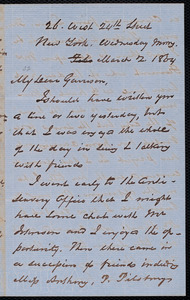 26. West 24th Street
New York. Wednesday morng.
March 2 1864
My dear Garrison,
I should have written you
a line or two yesterday, but
that I was enjoying the whole
of the day in being & talking
with friends
I went early to the Anti-
Slavery Office that I might
have some chat with Mr
Johnson and I enjoyed the op-
portunity. Then there came in
a succession of friends including
Miss Anthony, P. Pillsbury